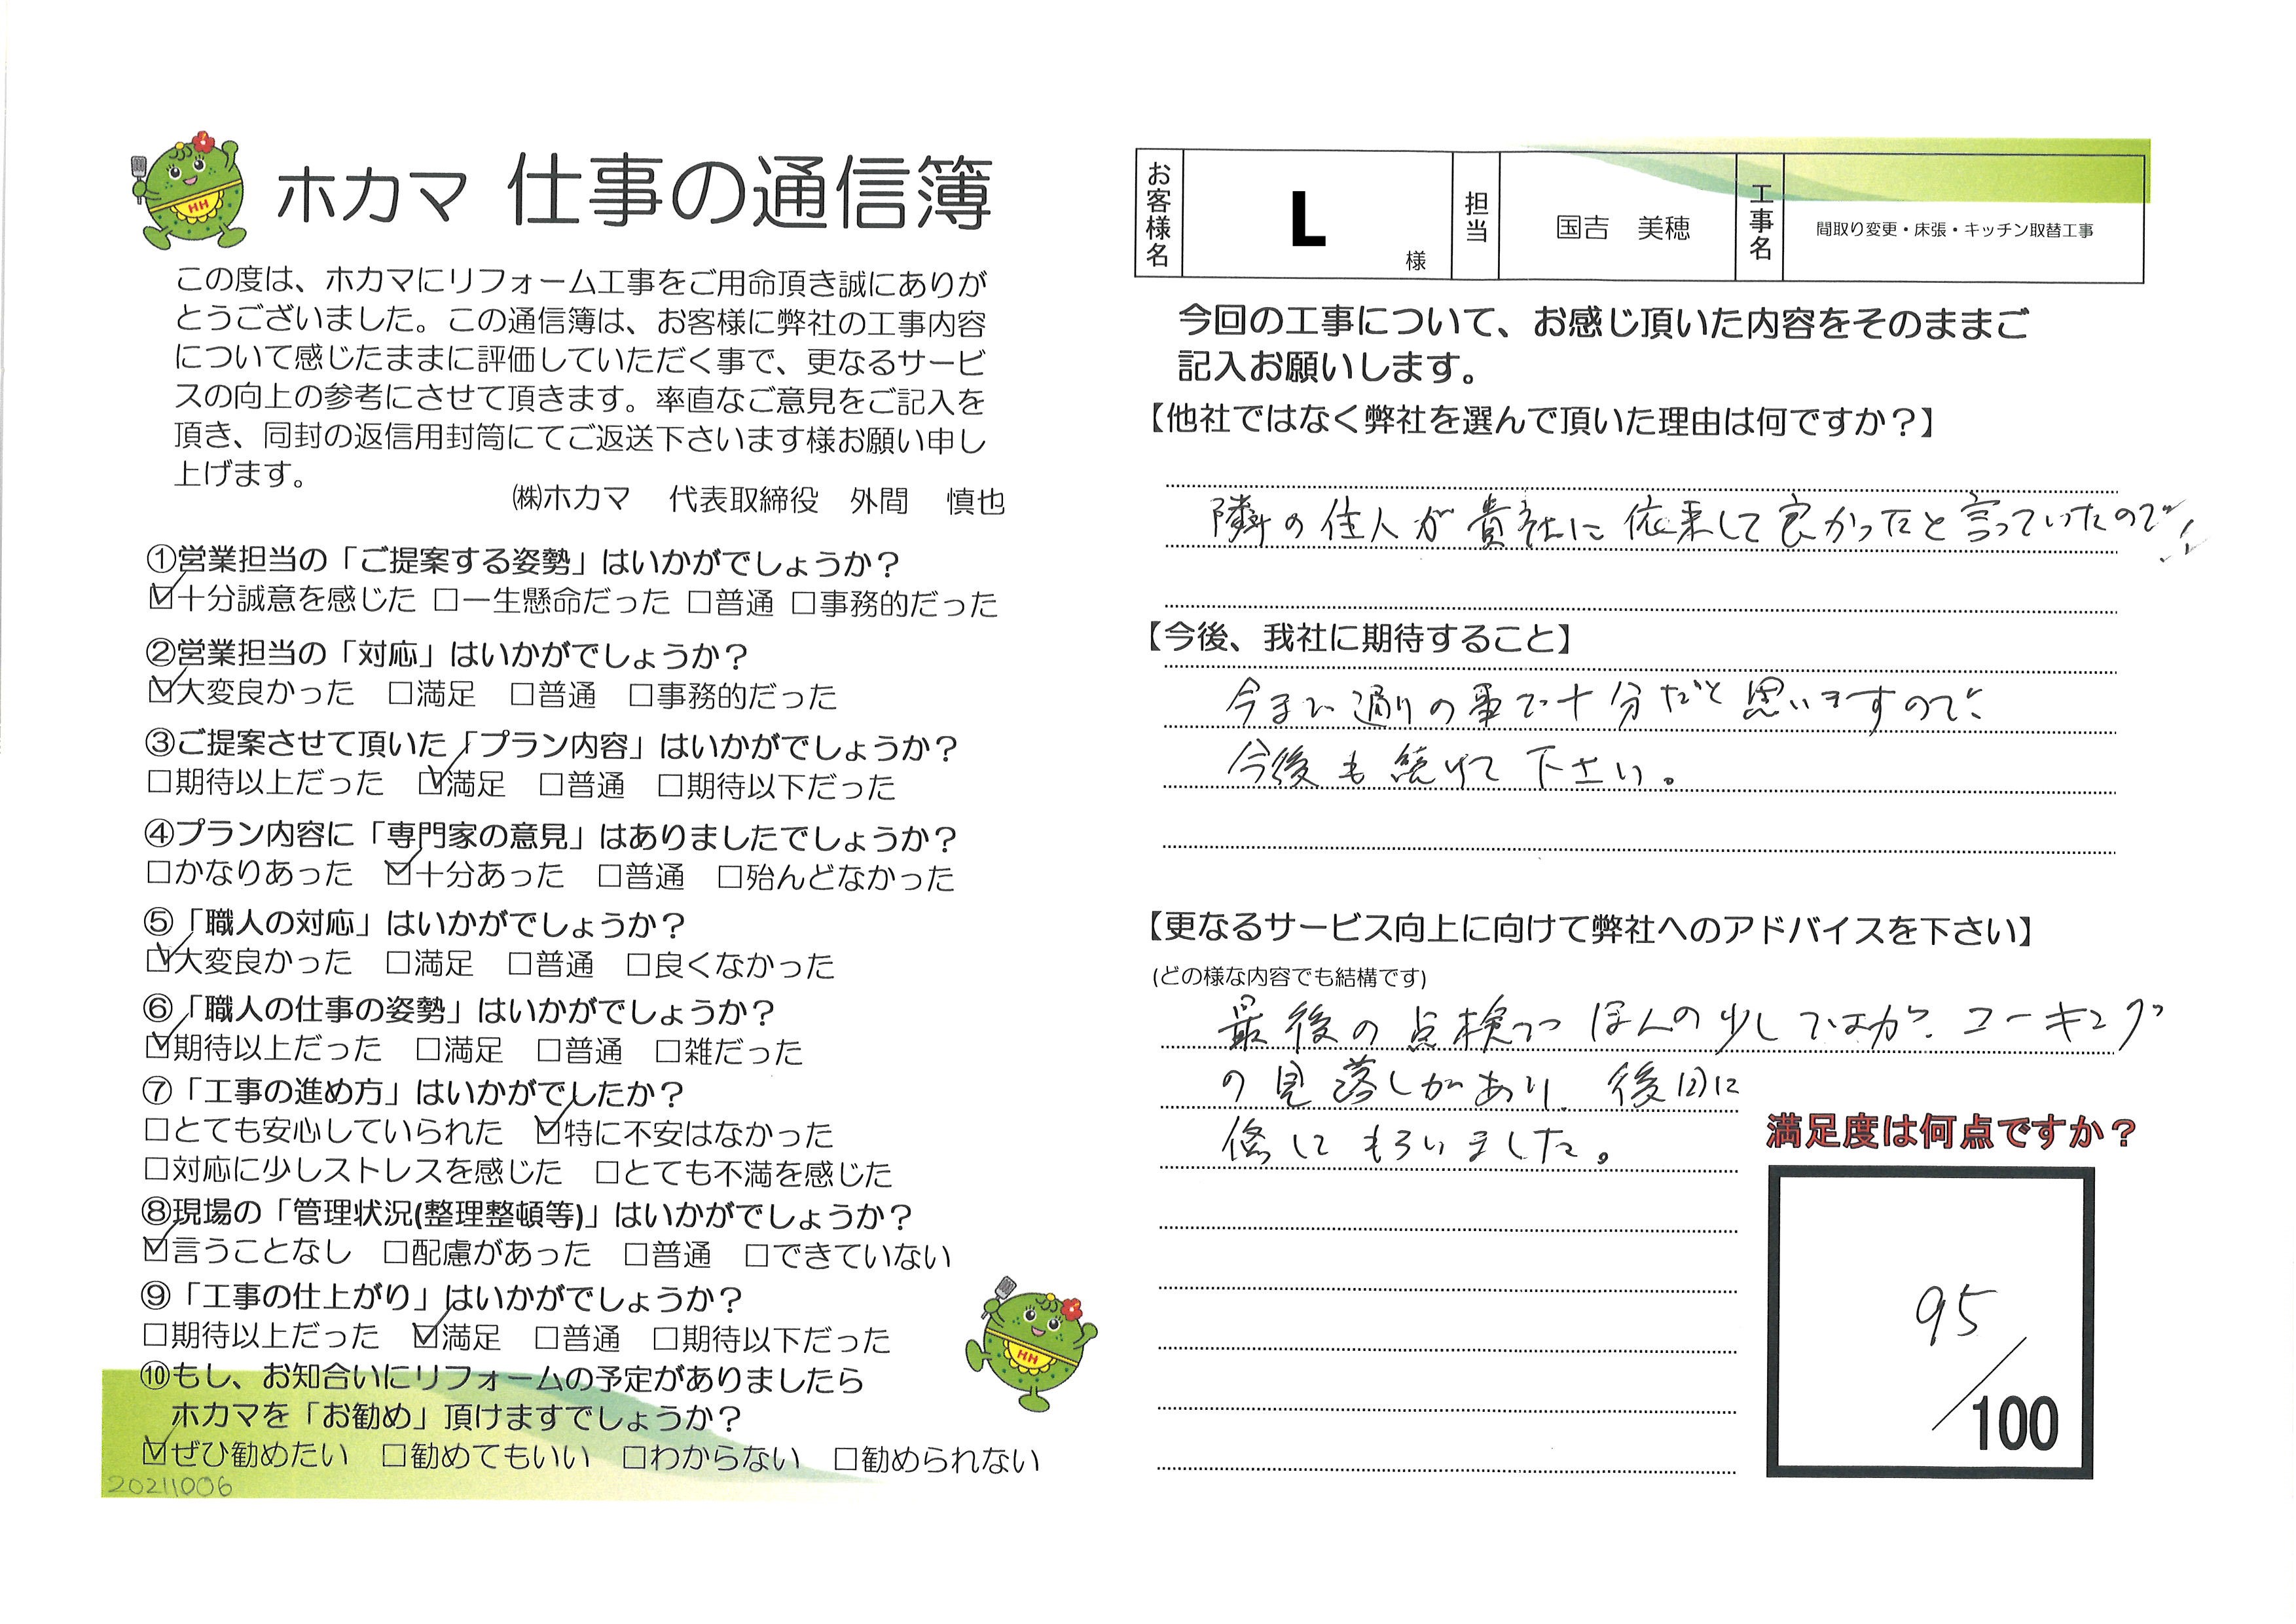 ホカマ 仕事の通信簿
この度は、ホカマにリフォーム工事をご用命頂き誠にありが
とうございました。この通信簿は、お客様に弊社の工事内容
について感じたままに評価していただく事で、更なるサービ
スの向上の参考にさせて頂きます。率直なご意見をご記入を
頂き、同封の返信用封筒にてご返送下さいます様お願い申し
上げます。
㈱ホカマ 代表取締役 外間 慎也
①営業担当の「ご提案する姿勢」はいかがでしょうか?
☑十分誠意を感じた □一生懸命だった □普通 □事務的だった
②営業担当の「対応」はいかがでしょうか?
☑大変良かった □満足 □普通 □事務的だった
③ご提案させて頂いた「プラン内容」はいかがでしょうか?
□期待以上だった ☑満足 □普通 □期待以下だった
④プラン内容に「専門家の意見」はありましたでしょうか?
□かなりあった ☑十分あった □普通 □殆んどなかった
⑤「職人の対応」はいかがでしょうか?
☑大変良かった □満足 □普通 □良くなかった
⑥「職人の仕事の姿勢」はいかがでしょうか?
☑期待以上だった □満足 □普通 □雑だった
⑦「工事の進め方」はいかがでしたか?
□とても安心していられた ☑特に不安はなかった
□対応に少しストレスを感じた □とても不満を感じた
⑧現場の「管理状況(整理整頓等)」はいかがでしょうか?
☑言うことなし □配慮があった □普通 □できていない
⑨「工事の仕上がり」はいかがでしょうか?
□期待以上だった ☑満足 □普通 □期待以下だった
⑩もし、お知合いにリフォームの予定がありましたら
ホカマを「お勧め」頂けますでしょうか?
☑ぜひ勧めたい □勧めてもいい □わからない □勧められない
20211006
お客様名 L 様 担当 国吉 美穂 工事名 間取り変更・床張・キッチン取替工事
今回の工事について、お感じ頂いた内容をそのままご
記入お願いします。
【他社ではなく弊社を選んで頂いた理由は何ですか?】
隣の住人が貴社に依来して良かったと言っていたので!
【今後、我社に期待すること】
今まで通りの事で十分だと思いますので
今後も続けて下さい。
【更なるサービス向上に向けて弊社へのアドバイスを下さい】
(どの様な内容でも結構です)
最後の点検で ほんの少しですが、コーキング
の見落しがあり、後日に
修してもらいました。
満足度は何点ですか?
95
/100
HH
HH